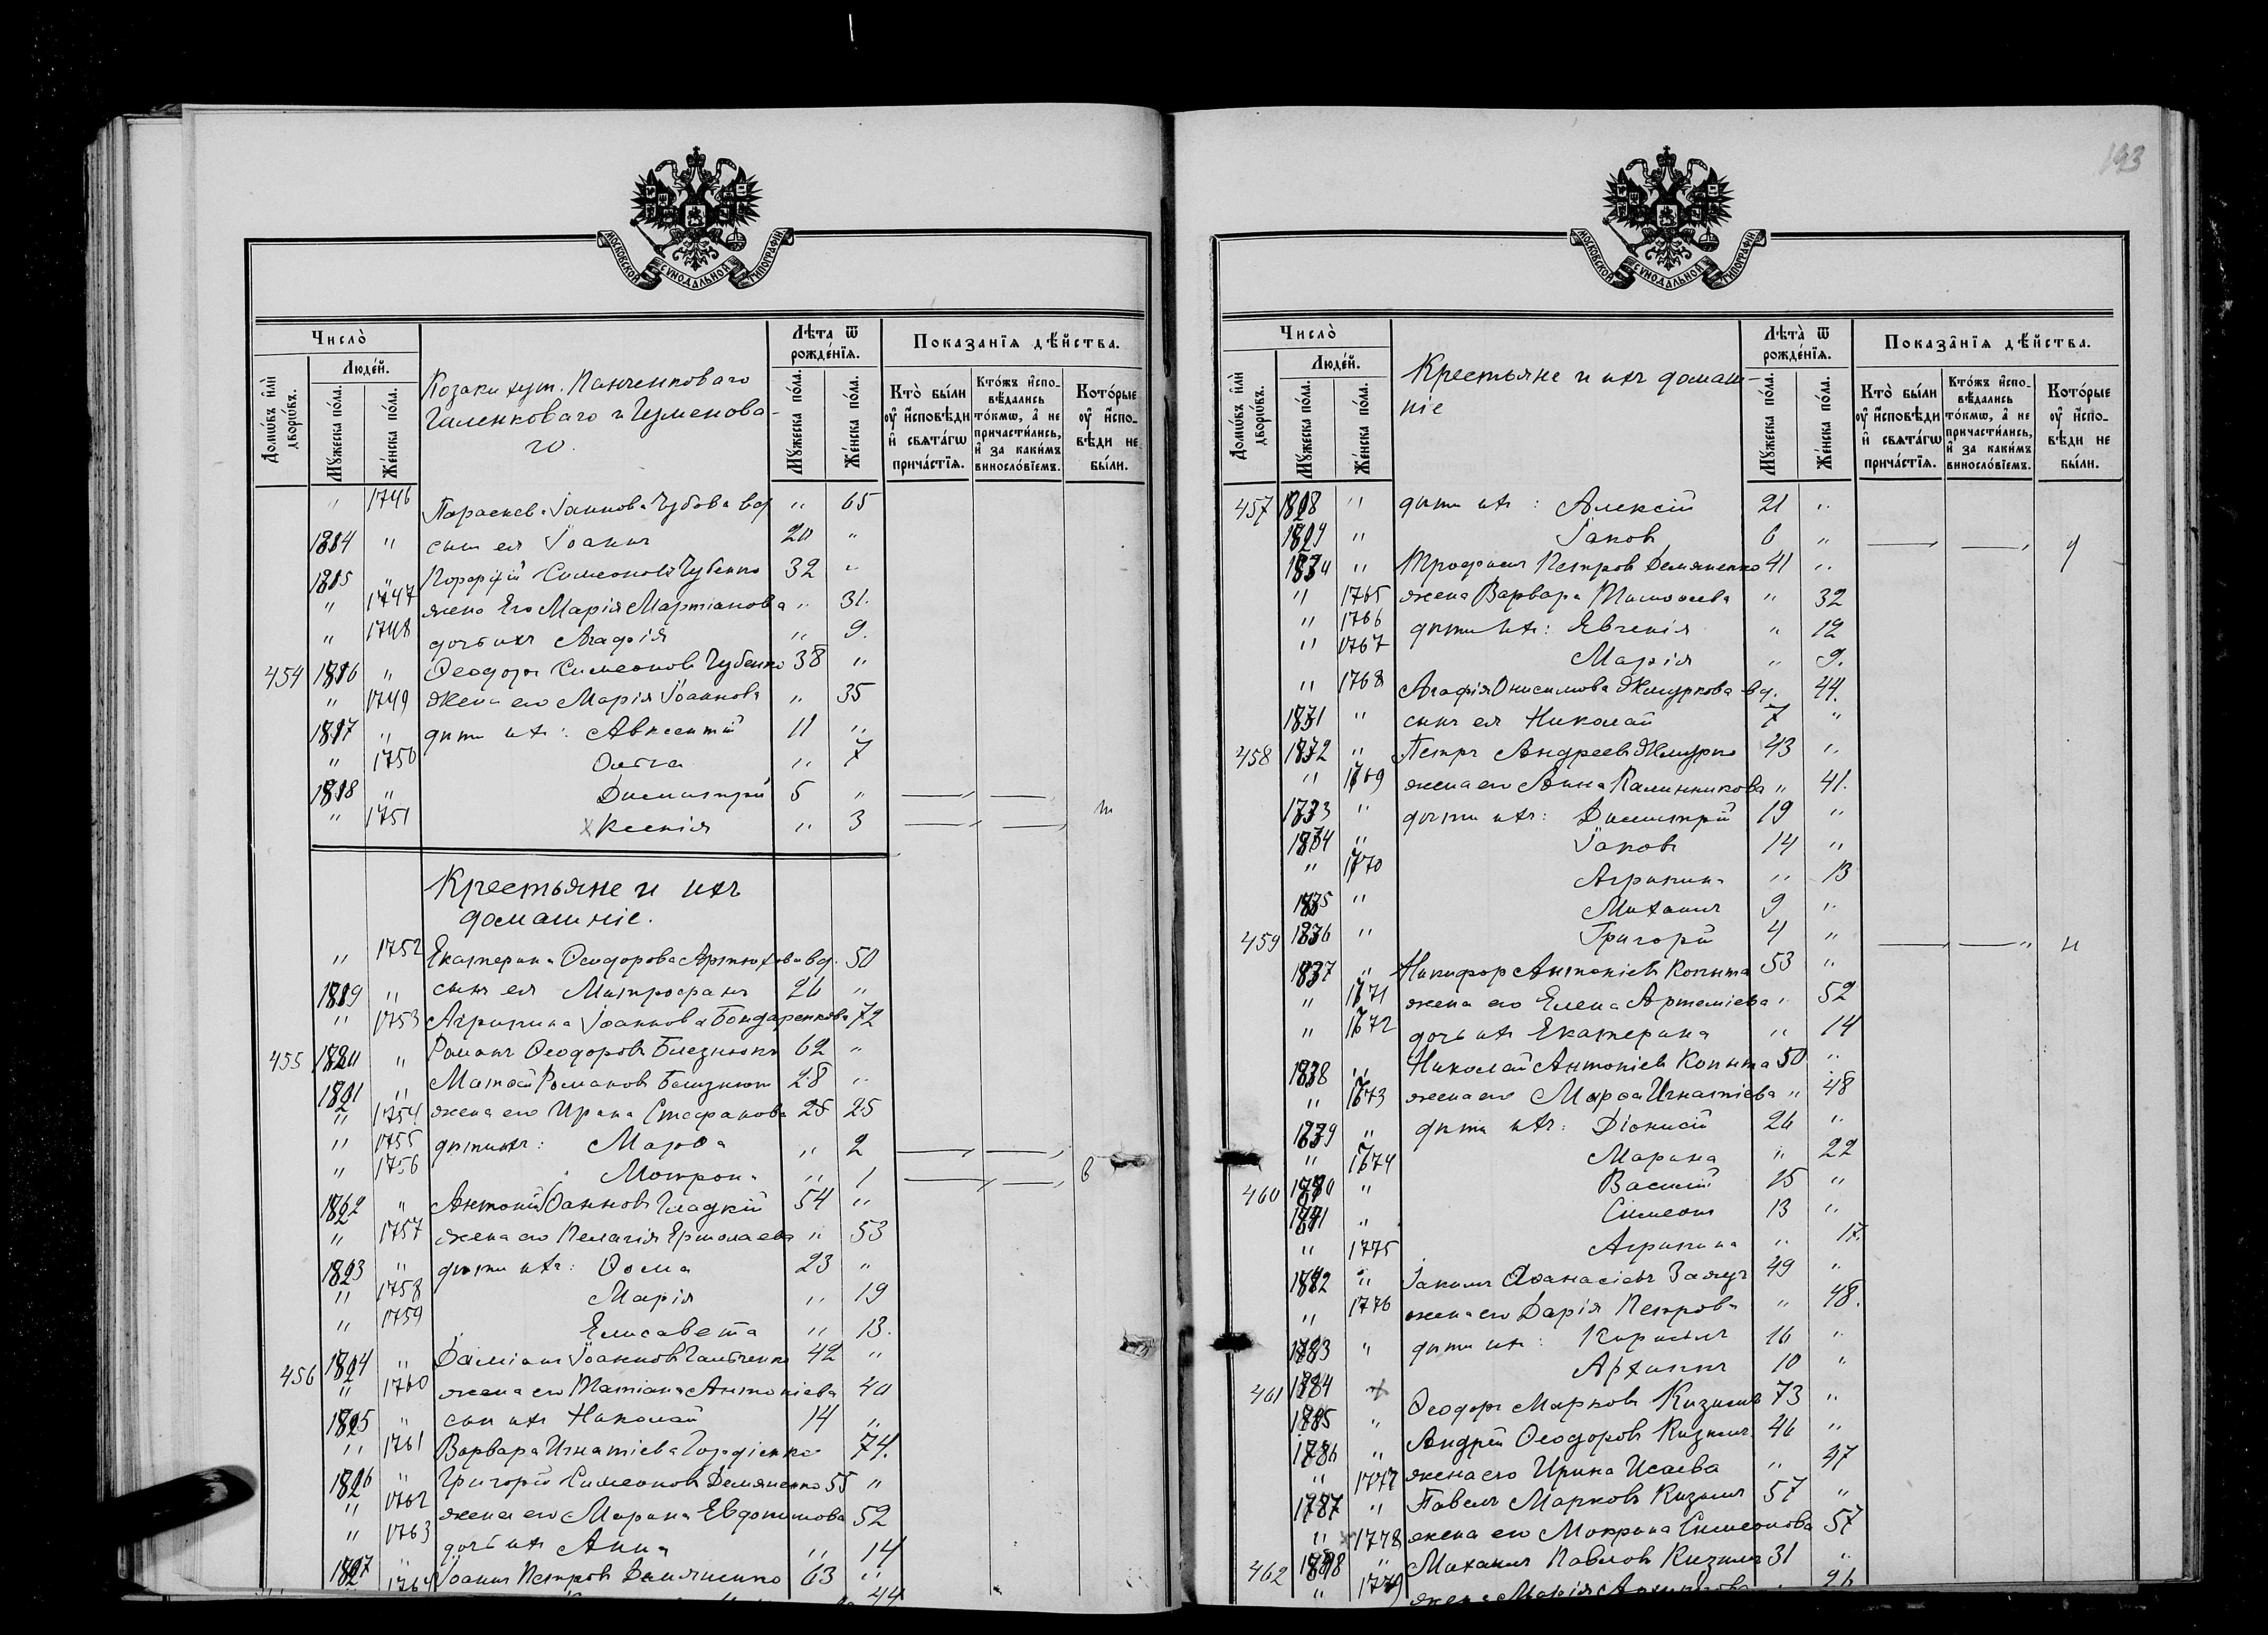 193
МОСКОВСКОЙ СѴНОДАЛЬНОЙ ТИПОГРАФІИ
Число̀
Людей.
Домѡвъ и҆лѝ дворѡвъ.
Мꙋжеска по́ла.
Же́нска по́ла.
Козаки хут. Панченковаго
Галенковаго и Гуменова-
го.
Лѣта ѿ рожде́нїѧ.
Мꙋжеска по́ла.
Же́нска по́ла.
Показанїѧ дѣйства.
Кто̀ бы́ли ᲂу҆ и҆сповѣди и҆ свѧта́гѡ прича́стїѧ.
Кто́жъ и҆спо-вѣдались то́кмѡ, а҆ не причасти́лись, и҆ за каки́мъ винословїемъ.
Кото́рые ᲂу҆ и҆спо-вѣди не бы́ли.
" 1746 Параскева Іоаннова Чубова вд " 65
1814 " сын ея Іоанн 20 "
1815 " Порфирій Симеонов Чубенко 32 "
" 1747 жена Его Марія Мартіанова " 31.
" 1748 дочь их Агафія " 9.
454 1816 " Ѳеодор Симеонов Чубенко 38 "
" 1749 Жена его Марія Іоаннова " 35
1817 " дѣти ихъ: Авксентій 11 "
" 1750 Ольга " 7
1818 " Димитрій 5 "
" 1751 Ксенія " 3
Крестьяне и ихъ
домашніе.
" 1752 Екатерина Ѳеодорова Артюхова вд. 50
1819 " сынъ ея Митрофанъ 26 "
" 1753 Агрипина Іоаннова Бондаренкова 72
455 1820 " Романъ Ѳеодоровъ Близнюкъ 62 "
1821 " Матѳей Романов Близнюк 28 "
" 1754 жена его Ирина Стефанова 25 25
" 1755 дѣти ихъ: Марѳа " 2
" 1756 Мотрона " 1
1822 " Антоній Іоаннов Гладкій 54 "
" 1757 жена его Пелагія Ермолаева " 53
1823 " дѣти ихъ: Ѳома 23 "
" 1758 Марія " 19
" 1759 Елисавета " 13.
456 1824 " Даміанъ Іоаннов Гальченко 42 "
" 1760 жена его Татіана Антоніева 40
1825 " сын ихъ Николай 14 "
" 1761 Варвара Игнатіева Гордіенко 74.
1826 " Григорій Симеонов Демяненко 55 "
" 1762 жена его Марина Евдокимова 52
" 1763 дочь ихъ Анна " 14
1827 " Іоанн Петров Демяненко 63 "
1764 44
Число̀
Людей.
Домѡвъ и҆лѝ дворѡвъ.
Мꙋжеска по́ла.
Же́нска по́ла.
Крестьяне и ихъ домаш-
ніе
Лѣта̀ ѿ рожде́нїѧ.
Мꙋжеска по́ла.
Же́нска по́ла.
Показанїѧ дѣйства.
Кто̀ бы́ли ᲂу҆ и҆сповѣди и҆ свѧта́гѡ прича́стїѧ.
Кто́жъ и҆спо-вѣдались то́кмѡ, а҆ не причасти́лись, и҆ за каки́мъ винословїемъ.
Кото́рые ᲂу҆ и҆спо-вѣди не бы́ли.
457 1828 " дѣти ихъ: Алексій 21 "
1829 " Іаков 6 "
1830 " Трофим Петров Демяненко 41 "
" 1765 жена Варвара Тимоѳеева " 32
" 1766 дѣти ихъ: Евгенія " 12
" 1767 Марія " 9.
" 1768 Агафія Онисимова Жмуркова вд. 44.
1831 " сынъ ея Николай 7 "
458 1832 " Петръ Андреевъ Жмурко 43 "
" 1769 жена его Анна Калинникова " 41.
1833 " дѣти ихъ: Димитрій 19 "
1834 " Іаковъ 14 "
" 1770 Агрипина " 13
1835 " Михаилъ 9 "
459 1836 " Григорій 4 "
1837 " Никифор Антоніев Копыта 53 "
" 1771 жена его Елена Артеміева " 52
" 1772 дочь ихъ Екатерина " 14
1838 " Николай Антоніев Копыта 50 "
" 1773 жена его Марѳа Игнатіева " 48
1839 " дѣти ихъ: Діонисій 26 "
" 1774 Марина " 22
460 1840 " Василій 15 "
1841 " Симеон 13 "
" 1775 Агрипина " 17.
1842 " Іаким Аѳанасіевъ 49 "
" 1776 жена его Дарія Петрова " 48.
1843 " дѣти ихъ: Кирилъ 16 "
Архипъ 10 "
461 1844 Ѳеодоръ Марковъ Кизимъ 73 "
1845 " Андрей Ѳеодоровъ Кизимъ 46 "
1846 " жена его Ирина Исаева " 47
" 1777 Павелъ Марковъ Кизимъ 57 "
1847 " жена его Мокрина Симеонова 57
" 1778
462 1848 " Михаилъ Павловъ Кизимъ 31 "
" 1779 жена Марія 26